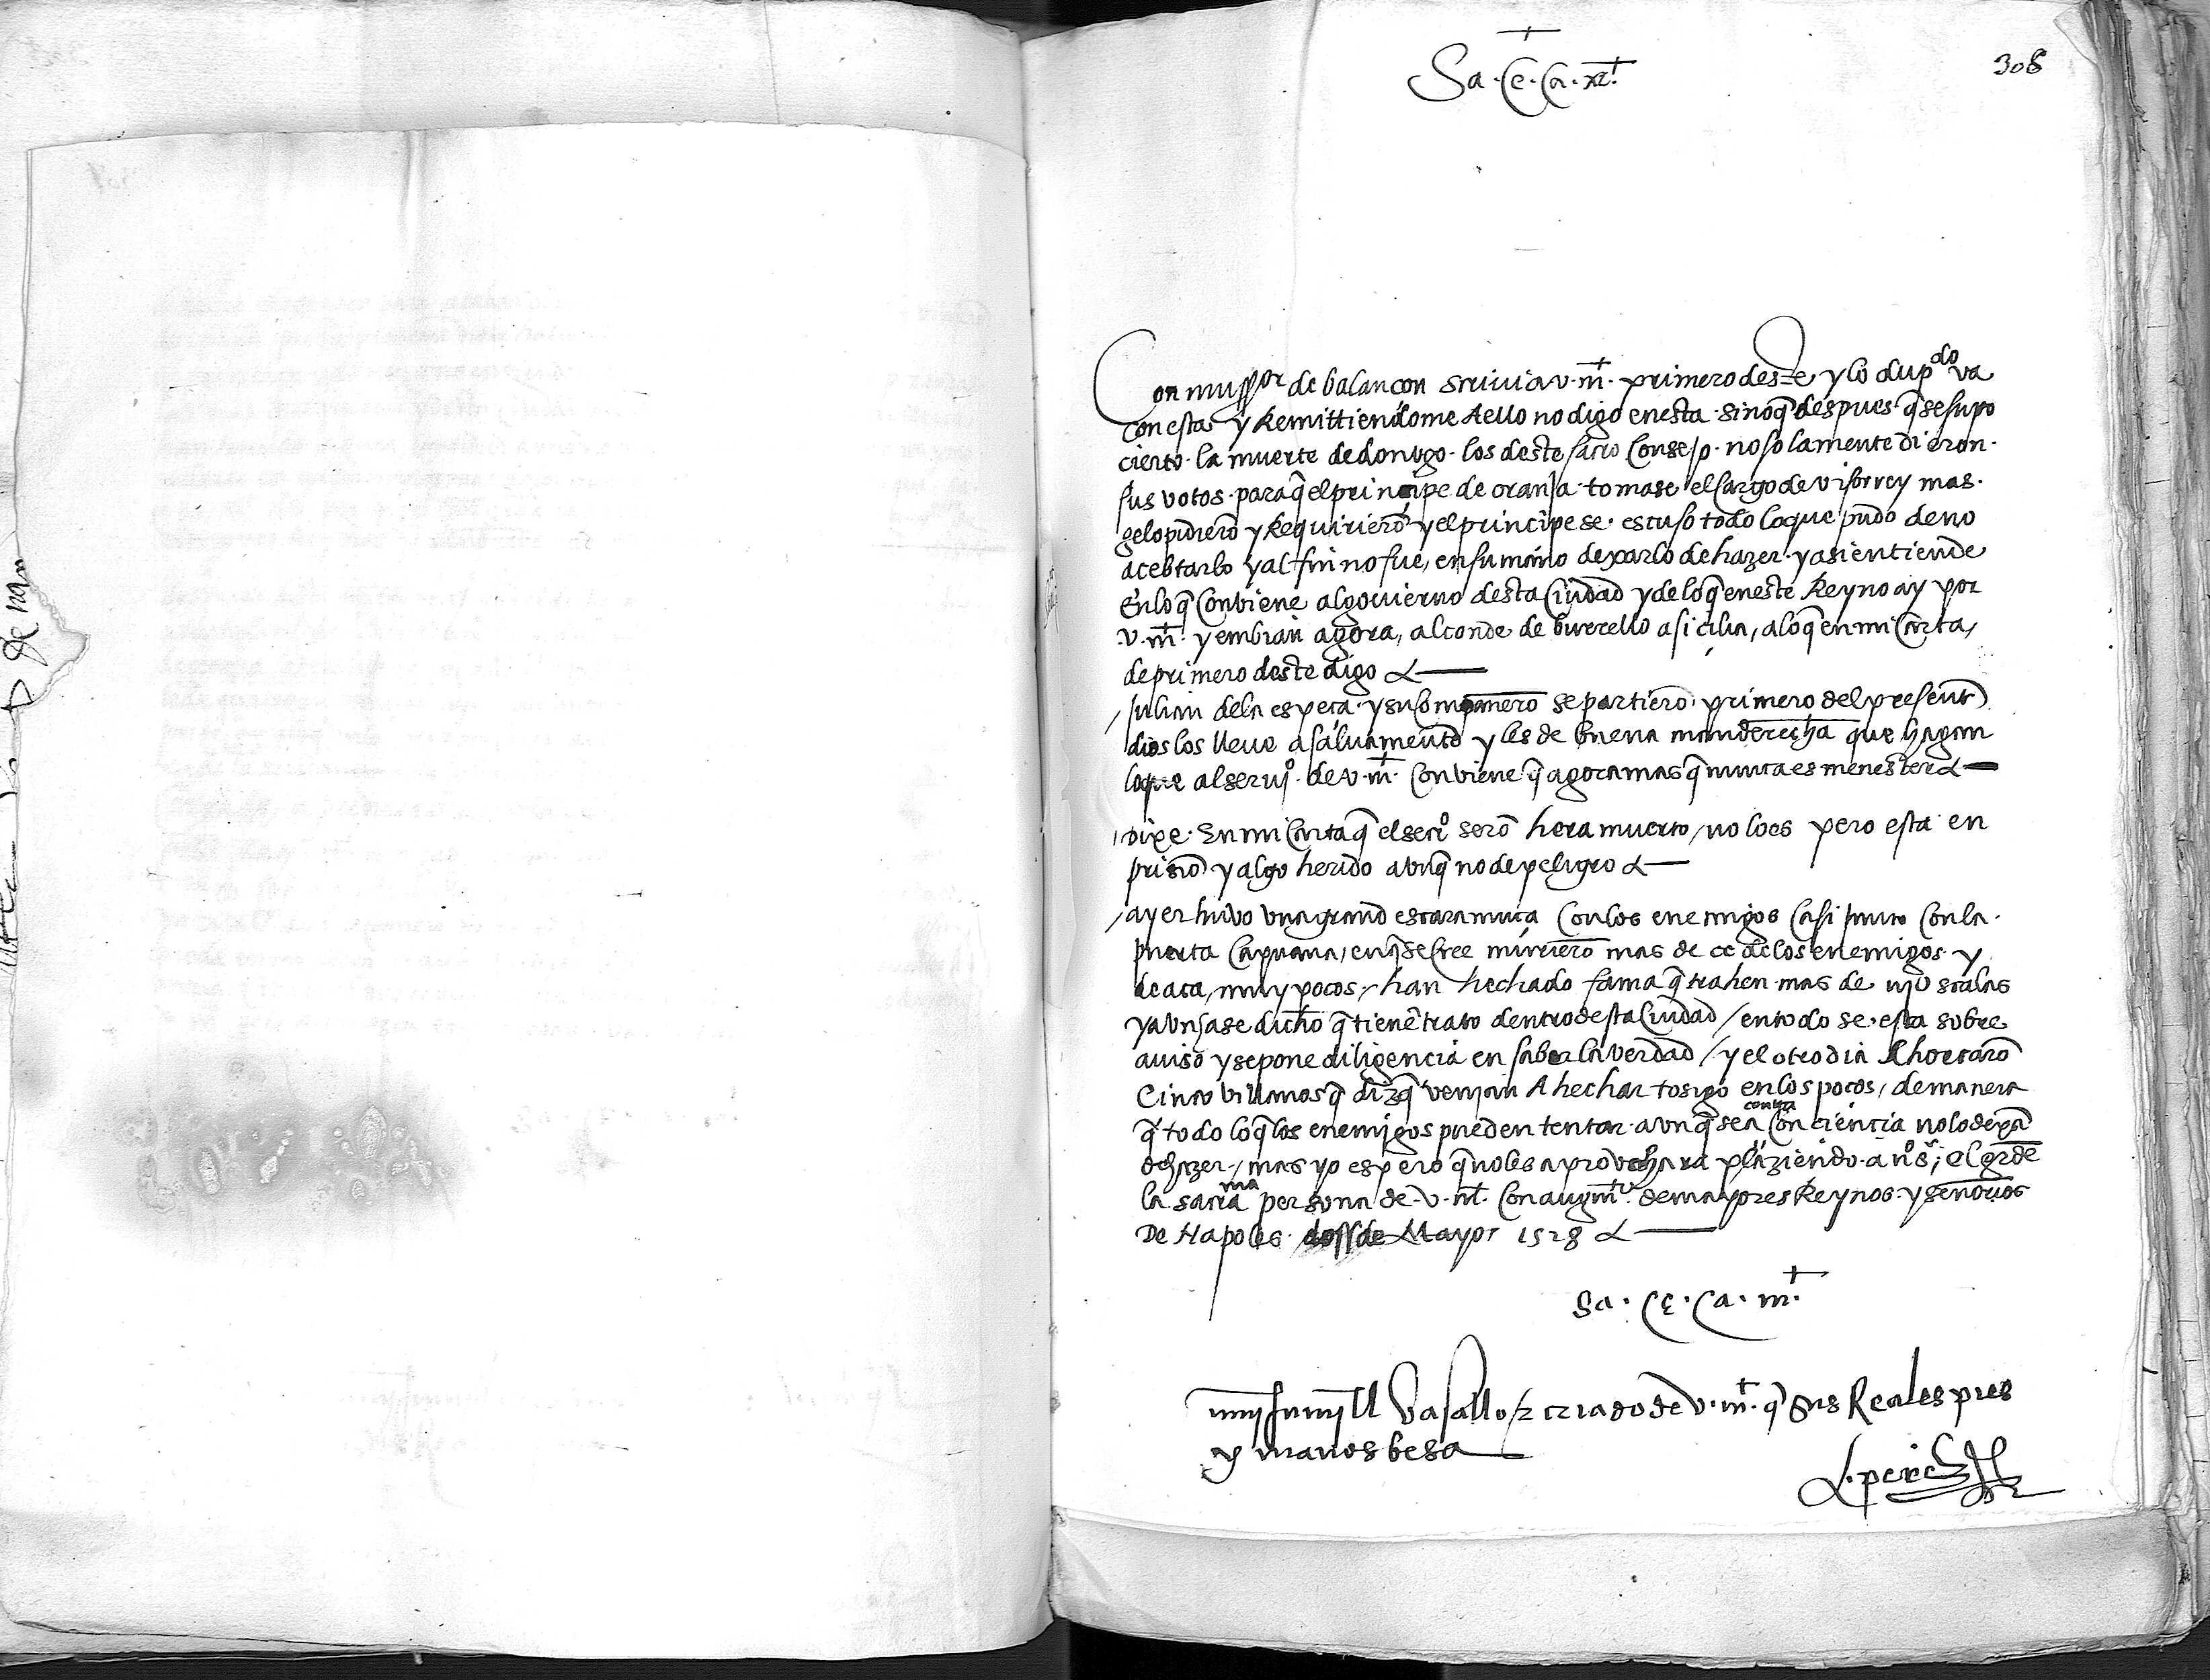 308
Sa. Ce. Ca. mt.
Con mussor de balancon screvi a v. mt. primero deste y lo dupdo va
con esta y Remittiendome Aello no digo en esta sino q̃ despues q̃ se supo
cierto la muerte de don ugo los deste sacro Consejo no solamente dieron
sus votos para q̃ el principe de oranja tomase el Cargo de visorrey mas
gelo pidierõ y Requirierõ y el principe se escuso todo lo que pudo de no
acebtarlo y al fin no fue, en su mano dexarlo de hazer y asi entiende
En lo q̃ Conviene al govierno desta Ciudad y de lo q̃ en este Reyno ay por
v. mt. y embian agora, al conde de burrello a sicilia, a lo q̃ en mi Carta,
de primero deste digo
/ Julian dela espeta y su Compañero se partierõ primero del presente
dios los lleve a salvamento y les de buena manderecha que hagan
lo que al servio. de v. mt. Conviene q̃ agora mas q̃ nunca es menester
/ Dixe En mi Carta q̃ el seco serõ hera muerto / no lo es pero esta en
prisiõ y algo herido aunq̃ no de peligro
/ ayer huvo una grand escaramuça Con los enemigos Casi junto Con la
puerta Capuana, en q̃ se Cree murierõ mas de cc de los enemigos y
de aca, muy pocos, han hechado fama q̃ trahen mas de scalas
y aun sase dicho q̃ tienẽ trato dentro desta Ciudad / en todo se esta sobre
aviso y se pone diligencia en saber la verdad / y el otro dia Ahorcarõ
Cinco villanos q̃ diz q̃ venian A hechar tosigo en los pocos, de manera
q̃ todo lo q̃ los enemigos pueden tentar aunq̃ sea contra Conciencia no lo dexã
de hazer, mas yo espero q̃ no les aprovechara plaziendo a nº sʳ, el garde
la sacrama persona de v. mt. Con augmto. de mayores Reynos y señorios
De Napoles doss de Mayo 1528
Sa. Ce. Ca. mt.
muy humyll vasallo / z criado de v. mt. q̃ sus Reales pies
y manos besa
L. perez